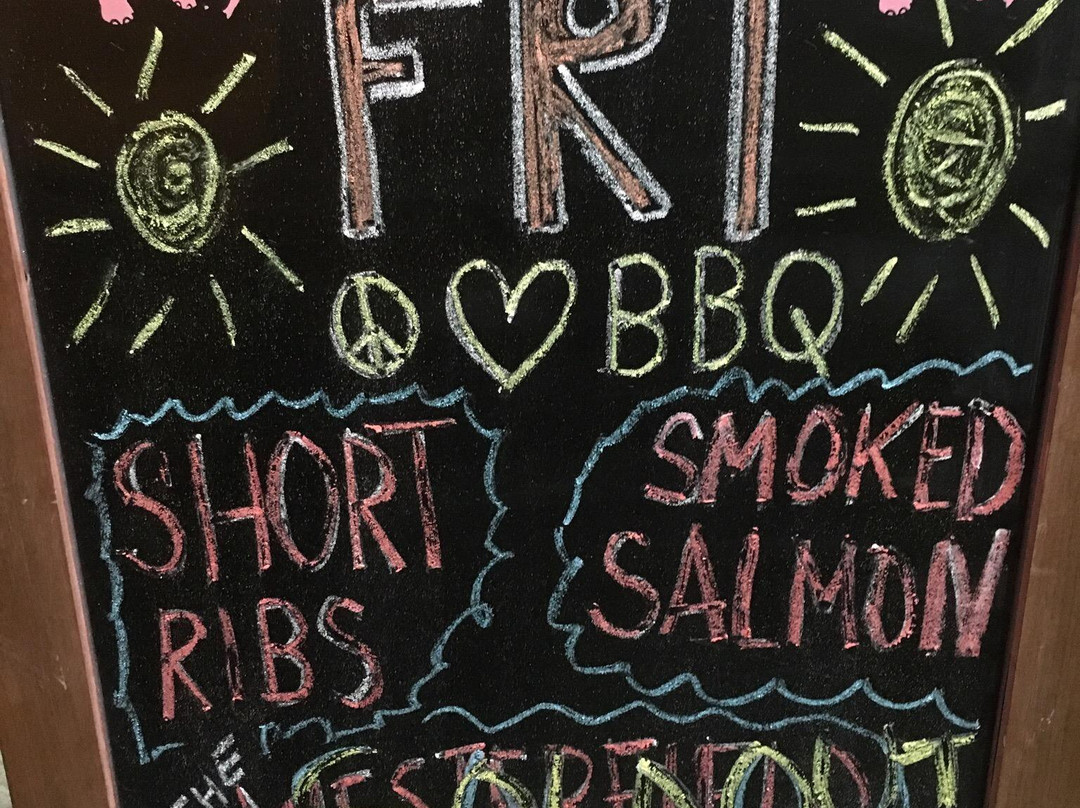 FRI
BBQ
SHORT
RIBS
SMOKED
SALMON
THE